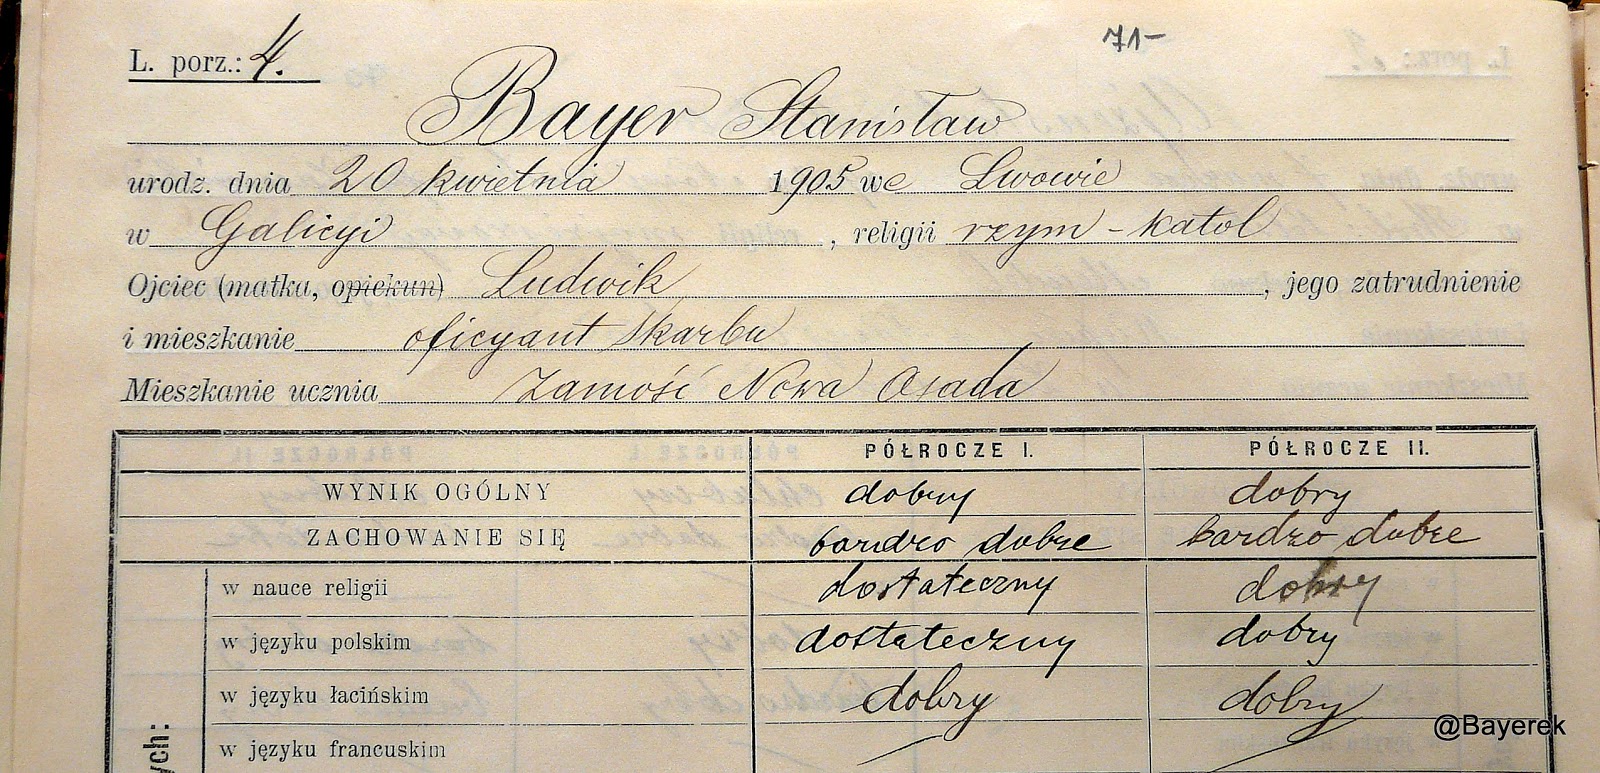 71-
L. porz.: 4.
Bayer Stanisław
urodz. dnia 20 kwietnia 1905 we Lwowie
w Galicyi, religii rzym-katol
Ojciec (matka, opiekun) Ludwik, jego zatrudnienie
i mieszkanie oficyant skarbu
Mieszkanie ucznia Zamość Nowa Osada
PÓŁROCZE I. PÓŁROCZE II.
WYNIK OGÓLNY dobry dobry
ZACHOWANIE SIĘ bardzo dobre bardzo dobre
w nauce religii dostateczny dobry
w języku polskim dostateczny dobry
w języku łacińskim dobry dobry
w języku francuskim — —
ych:
@Bayerek